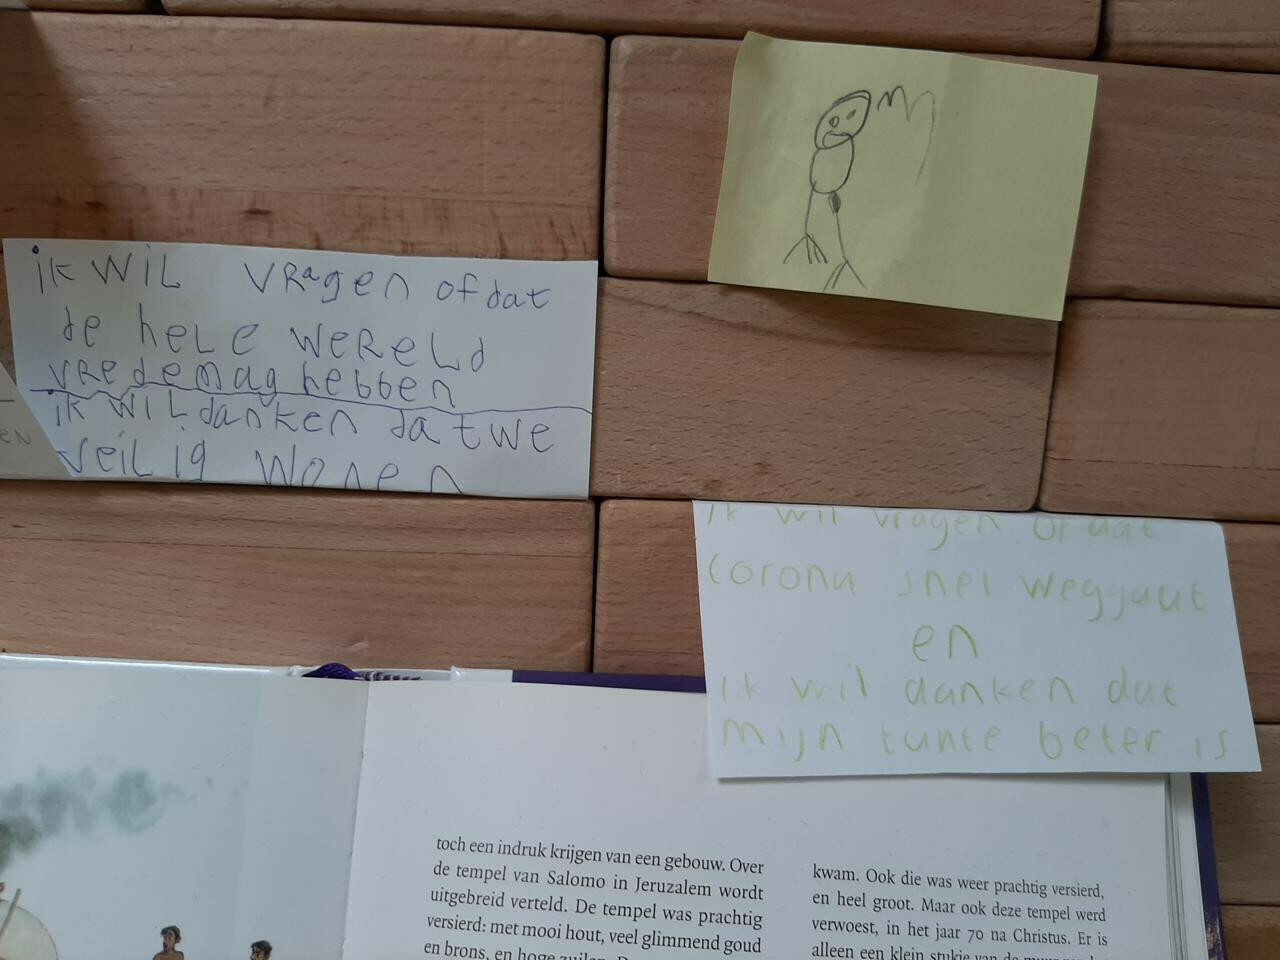 ik wil vragen of dat
de hele wereld
vrede mag hebben
ik wil danken dat we
veilig wonen
en
ik wil vragen of dat
corona snel weggaat
en
ik wil danken dat
mijn tante beter is
toch een indruk krijgen van een gebouw. Over
de tempel van Salomo in Jeruzalem wordt
uitgebreid verteld. De tempel was prachtig
versierd: met mooi hout, veel glimmend goud
en brons, en hoge zuilen.
kwam. Ook die was weer prachtig versierd,
en heel groot. Maar ook deze tempel werd
verwoest, in het jaar 70 na Christus. Er is
alleen een klein stukje van de muur